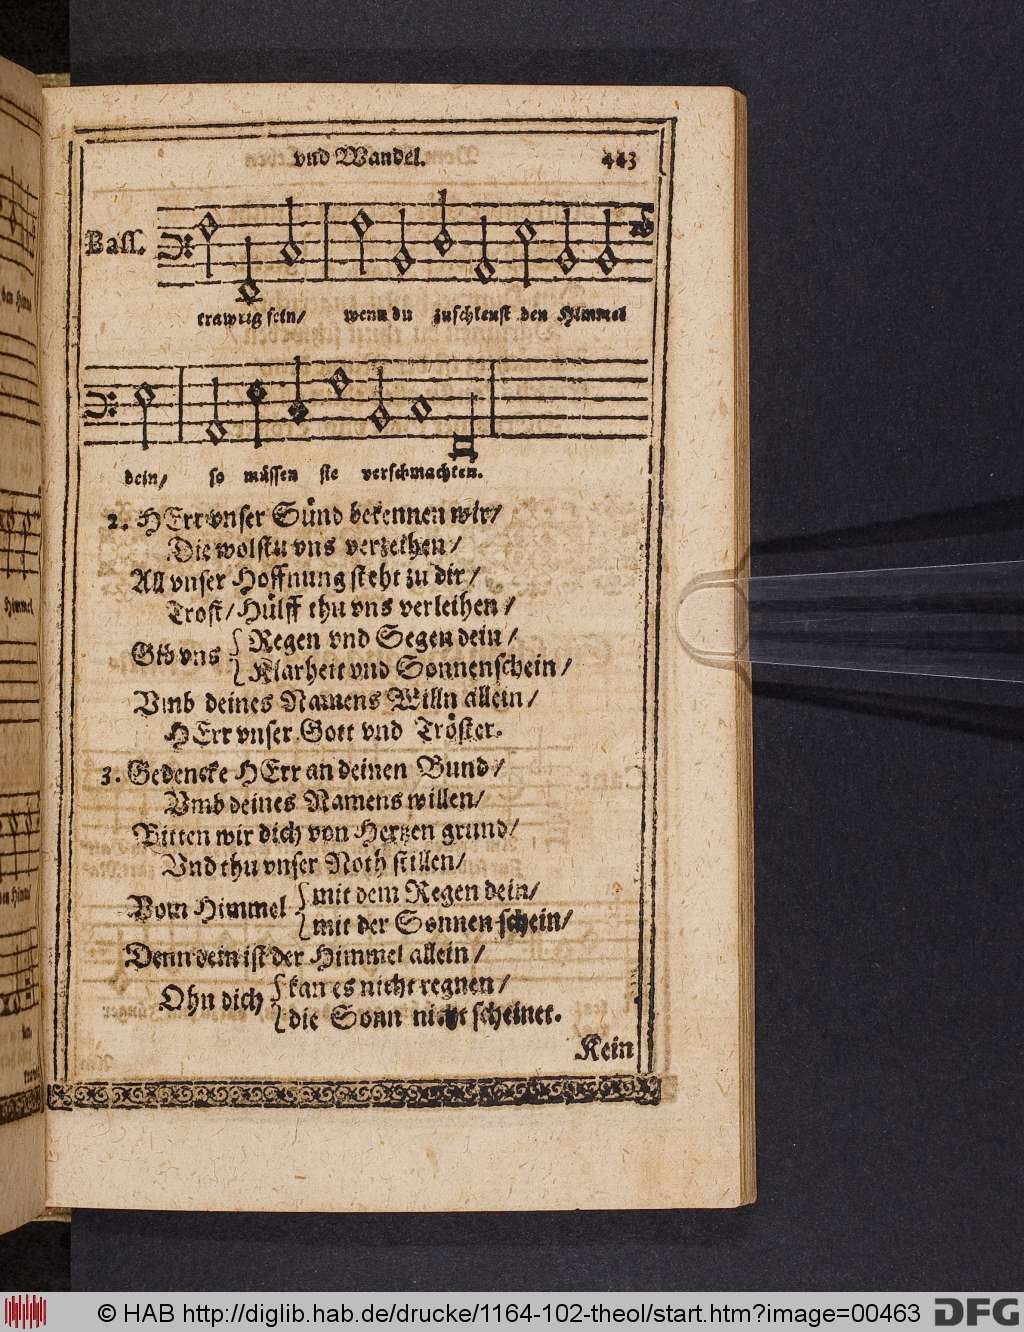 vnd Wandel. 443
Bass.
trawrig sein/ wenn du zuschleust den Himmel
dein/ so müssen sie verschmachten.
2. HErr vnser Sünd bekennen wir/
Die wolstu vns verzeihen/
All vnser Hoffnung steht zu dir/
Trost/ Hülff thu vns verleihen/
Gib vns { Regen vnd Segen dein/
{ Klarheit vnd Sonnenschein/
Vmb deines Namens Willn allein/
HErr vnser Gott vnd Tröster.
3. Gedencke HErr an deinen Bund/
Vmb deines Namens willen/
Bitten wir dich von Hertzen grund/
Vnd thu vnser Noth stillen/
Vom Himmel { mit dem Regen dein/
{ mit der Sonnen schein/
Denn dein ist der Himmel allein/
Ohn dich { kan es nicht regnen/
{ die Sonn nicht scheinet.
Kein
© HAB http://diglib.hab.de/drucke/1164-102-theol/start.htm?image=00463
DFG